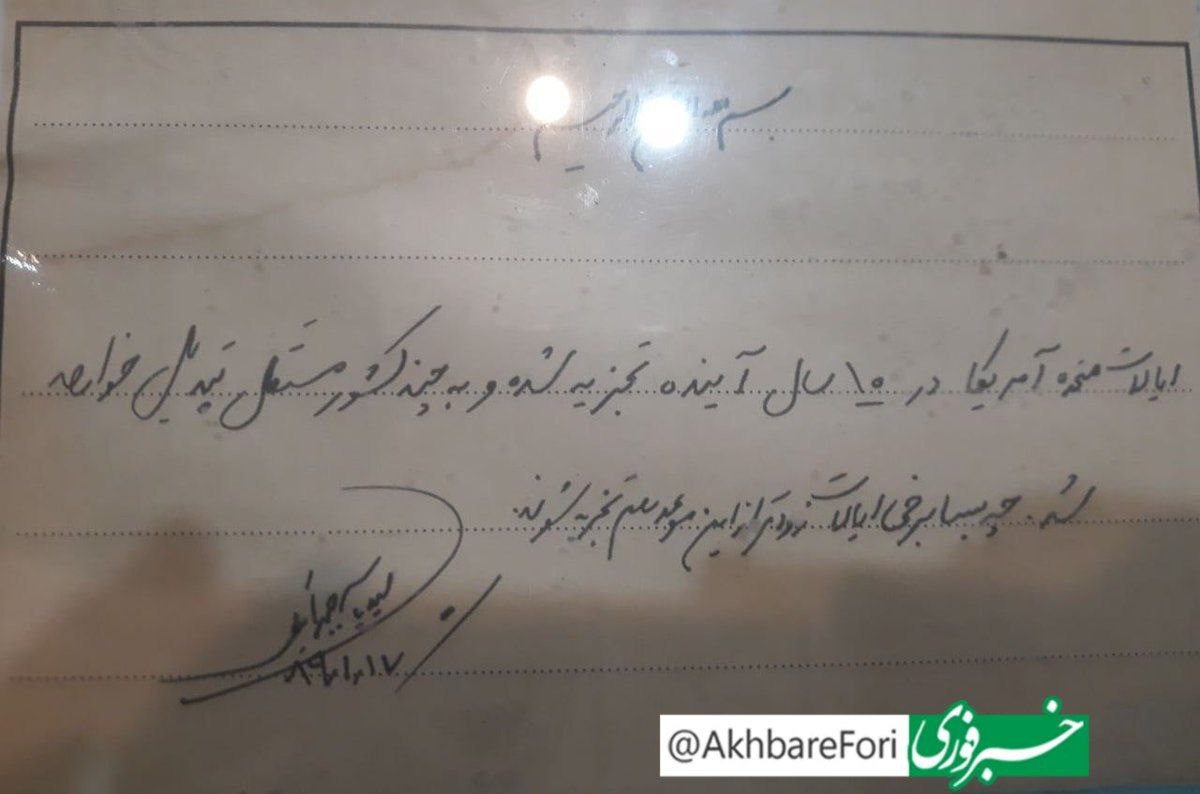 بسم الله الرحیم
ایالات متحده آمریکا در ۱۵ سال آینده تجزیه شده و به چند کشور مستقل تبدیل خواهد
شد. چه بسا برخی ایالات زودتر از این موعد هم تجزیه شوند.
سید یاسر جبرائیلی
@AkhbareFori خبرفوری